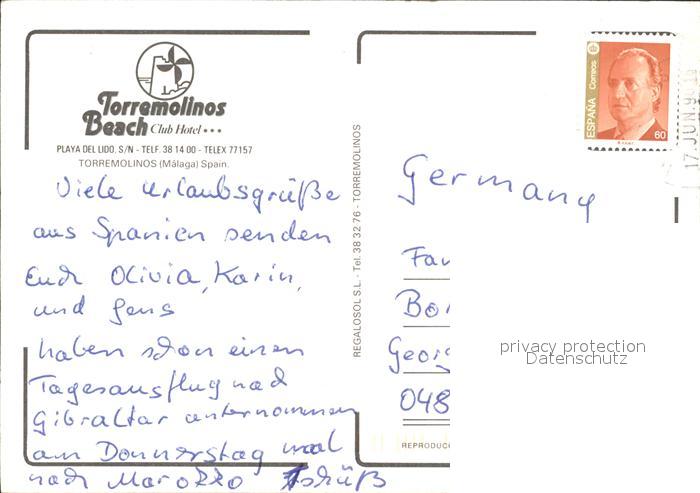 Torremolinos
Beach Club Hotel ***
PLAYA DEL LIDO, S/N - TELF. 38 14 00 - TELEX 77157
TORREMOLINOS (Málaga) Spain.
Viele Urlaubsgrüße
aus Spanien senden
Euch Olivia, Karin,
und Jens
haben schon einen
Tagesausflug nach
Gibraltar unternommen
am Donnerstag mal
nach Marokko Tschüß
REGALOSOL S.L. - Tel. 38 32 76 - TORREMOLINOS
ESPAÑA Correos
60
17. JUN. 9
Germany
Fam
Bor
Georg
048
REPRODUC
privacy protection
Datenschutz